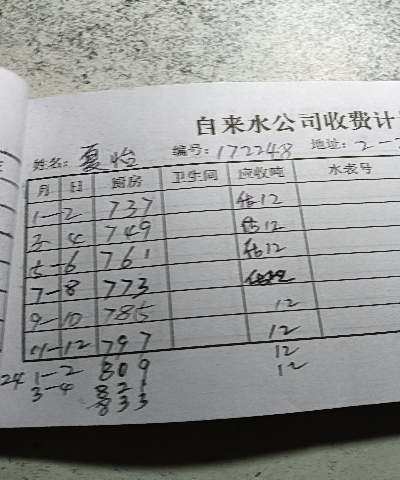 自来水公司收费计
姓名: 夏怡 编号: 172248 地址: 2-
月 日 厨房 卫生间 应收吨 水表号
1-2 737 估12
3 4 749 估12
5-6 761 估12
7-8 773
9-10 785 12
11-12 797 12
24 1-2 809 12
3-4 821 12
833